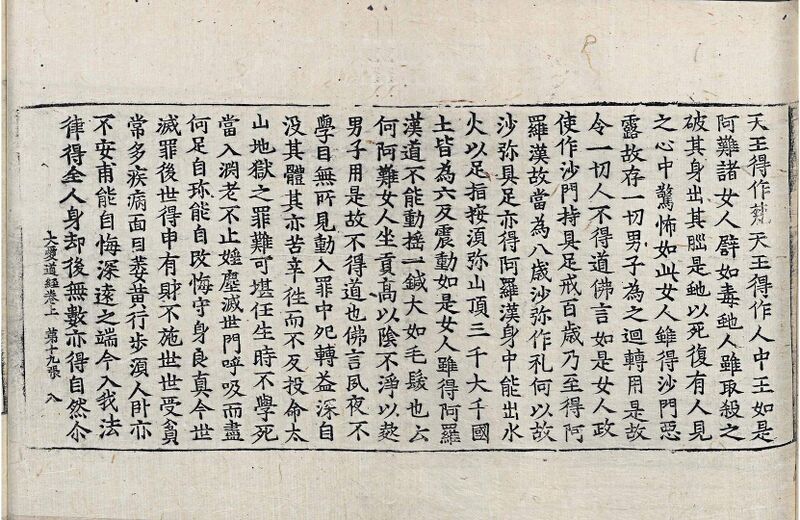 天王得作梵天王得作人中王如是
阿難諸女人譬如毒虵人雖取殺之
破其身出其腦是虵以死復有人見
之心中驚怖如此女人雖得沙門惡
露故存一切男子為之迴轉用是故
令一切人不得道佛言如是女人政
使作沙門持具足戒百歲乃至得阿
羅漢故當為八歲沙弥作礼何以故
沙弥具足亦得阿羅漢身中能出水
火以足指按湏弥山頂三千大千國
土皆為六反震動如是女人雖得阿羅
漢道不能動搖一鍼大如毛髮也云
何阿難女人坐貢高以陰不淨以
男子用是故不得道也佛言夙夜不
學目無所見動入罪中死轉益深自
没其體其亦苦辛徃而不反投命太
山地獄之罪難可堪任生時不學死
當入渕老不止婬塵滅世門呼吸而盡
何足自珎能自改悔守身良真今世
滅罪後世得申有財不施世世受貧
常多疾病面目萎黄行步湏人卧亦
不安甫能自悔深遠之端今入我法
律得全人身却後無數亦得自然尒
大愛道經卷上 第十九張 入